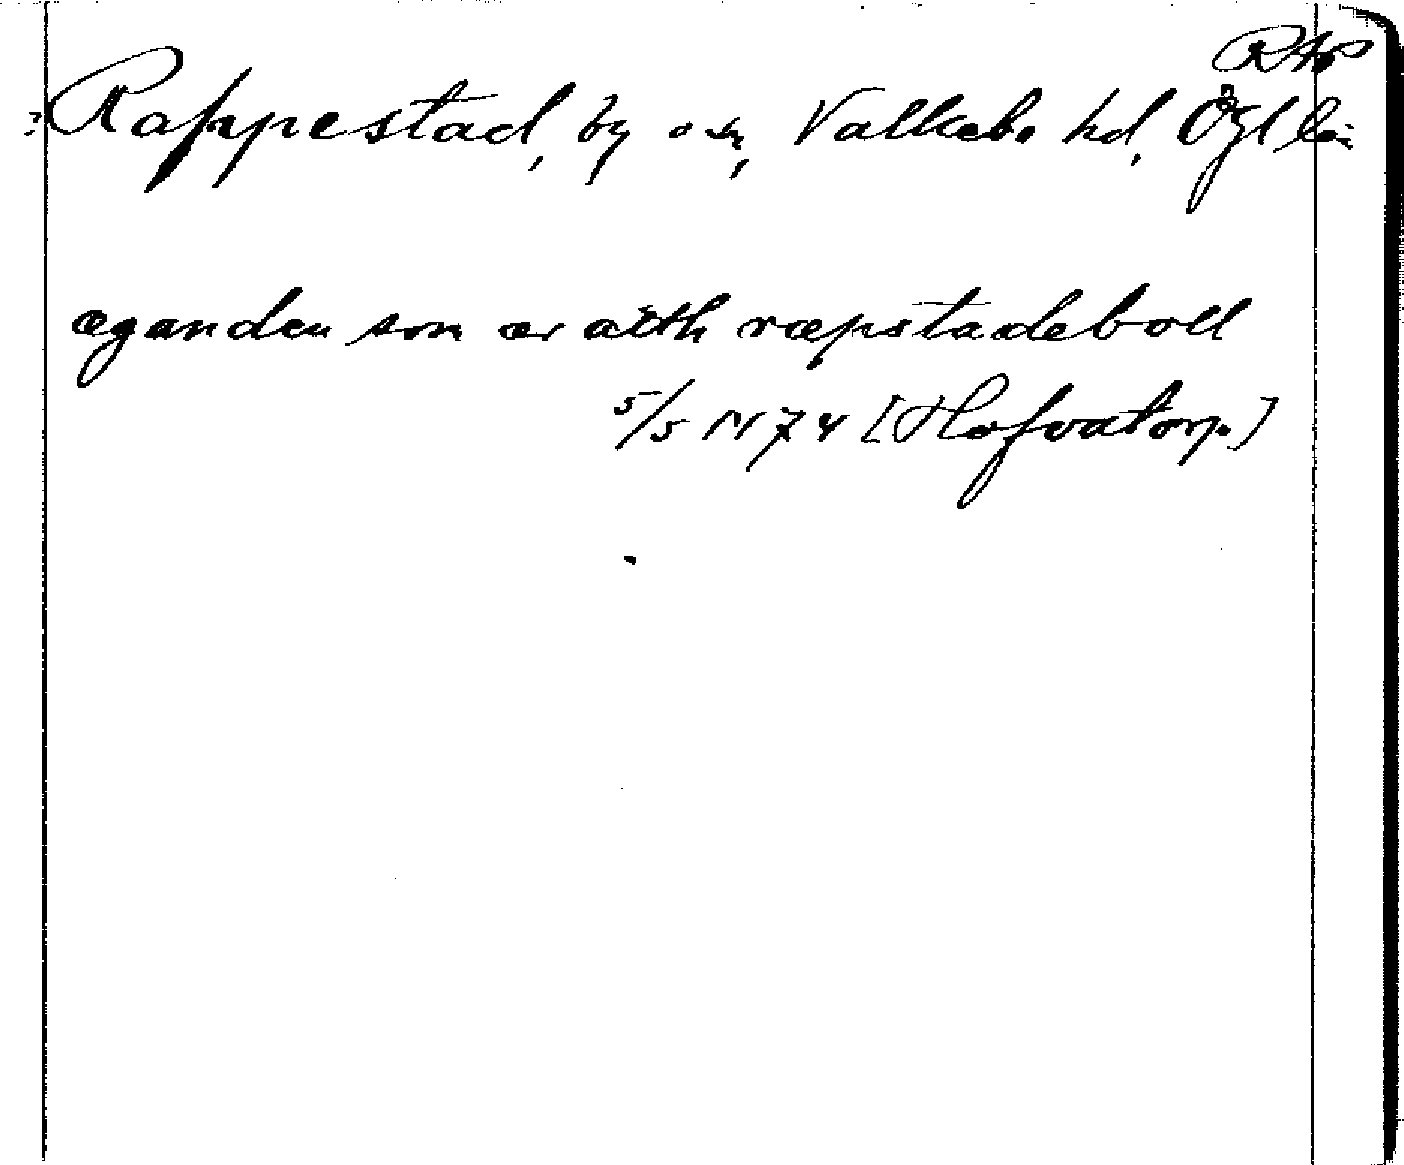 RAp
? Rappestad, by o. sn, Valkebo hd, Ögl län
æganden som ær atth ræpstadeboll
5/5 1474 [Hofvatorp.]